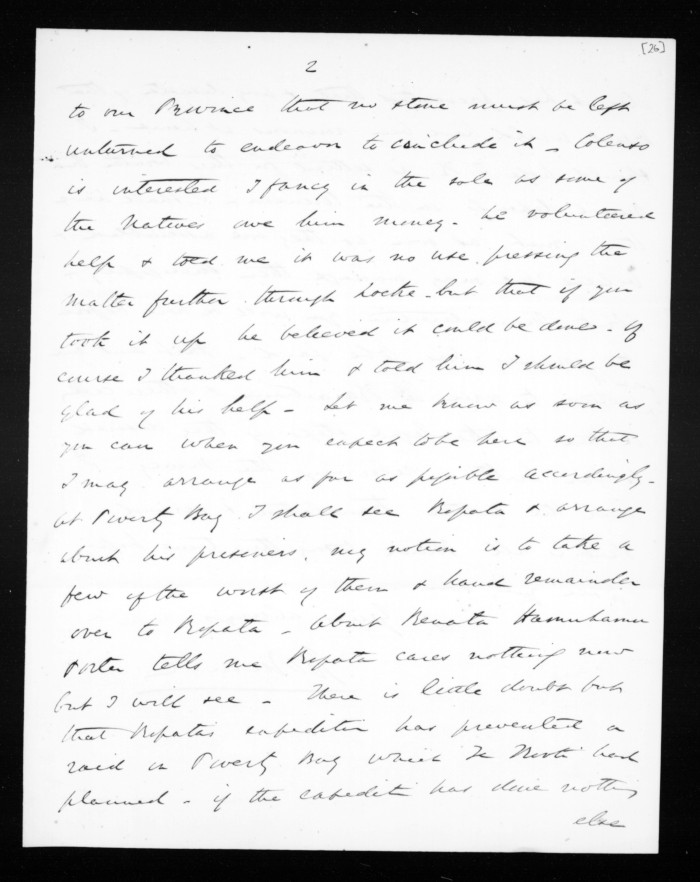 [26]
2
to our Province that no stone must be left
unturned to endeavor to conclude it - Colenso
is interested I fancy in the sale as some of
the Natives owe him money - he volunteered
help & told me it was no use pressing the
matter further through Locke - but that if you
took it up he believed it could be done - Of
course I thanked him & told him I should be
glad of his help - Let me know as soon as
you can when you expect to be here so that
I may arrange as far as possible accordingly -
At Poverty Bay I shall see Ropata & arrange
about his prisoners. my notion is to take a
few of the worst of them & hand remainder
over to Ropata - About Renata
Porter tells me Ropata cares nothing now
but I will see - There is little doubt but
that Ropatas expedition has prevented a
raid on Poverty Bay which Te Kooti had
planned - if the expediti has done nothing
else